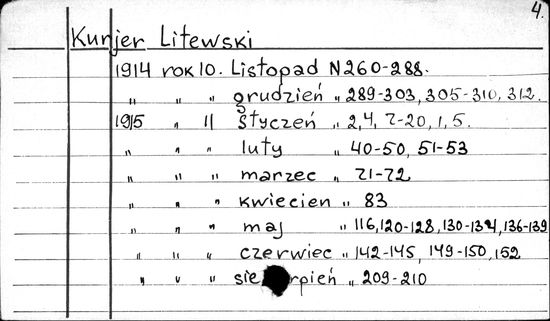 4.
Kurjer Litewski
1914 rok 10. Listopad N 260-288.
" " " grudzień " 289-303, 305-310, 312.
1915 " 11 Styczeń " 2,4, 7-20, 1, 5.
" " " luty " 40-50, 51-53
" " " marzec " 71-72
" " " kwiecien " 83
" " " maj " 116, 120-128, 130-134, 136-139
" " " czerwiec " 142-145, 149-150, 152
" " " sierpień " 209-210